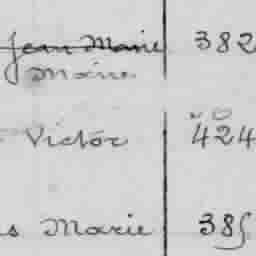 Jean Marie 382
Marie
Victor 424
s Marie 385